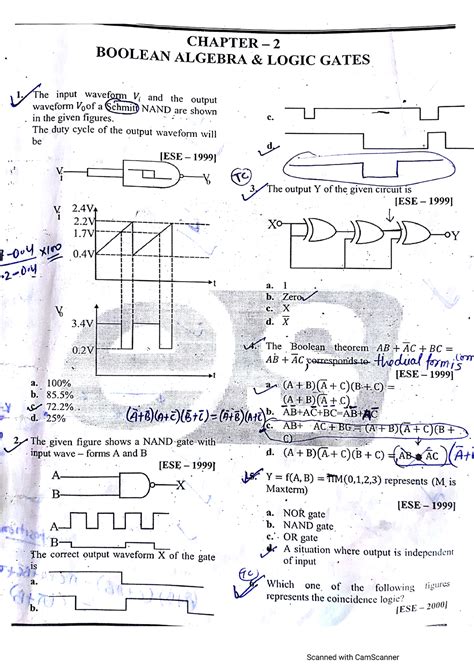 CHAPTER – 2
BOOLEAN ALGEBRA & LOGIC GATES
1. The input waveform Vi and the output
waveform V0 of a Schmitt NAND are shown
in the given figures.
The duty cycle of the output waveform will
be
[ESE – 1999]
Vi
V0
Vi
2.4V
2.2V
1.7V
0.4V
t
x100
V0
3.4V
0.2V
t
a. 100%
b. 85.5%
c. 72.2%
d. 25%
2. The given figure shows a NAND gate with
input wave – forms A and B
[ESE – 1999]
A
B
X
A
B
The correct output waveform X of the gate
is
a.
b.
c.
d.
TC
3. The output Y of the given circuit is
[ESE – 1999]
X
Y
a. 1
b. Zero
c. X
d. X̅
4. The Boolean theorem AB + A̅C + BC =
AB + A̅C corresponds to the dual form is
[ESE – 1999]
a. (A + B)(A̅ + C)(B + C) =
(A + B)(A̅ + C)
b. AB+A̅C+BC=AB+A̅C
c. AB+ A̅C + BC = (A + B)(A̅ + C)(B +
C)
d. (A + B)(A̅ + C)(B + C) = AB A̅C
(A̅+B̅)(A+C̅)(B̅+C̅) = (A̅+B̅)(A+C̅)
5. Y = f(A, B) = ΠM(0,1,2,3) represents (M, is
Maxterm)
[ESE – 1999]
a. NOR gate
b. NAND gate
c. OR gate
d. A situation where output is independent
of input
TC
6. Which one of the following figures
represents the coincidence logic?
[ESE – 2000]
Scanned with CamScanner